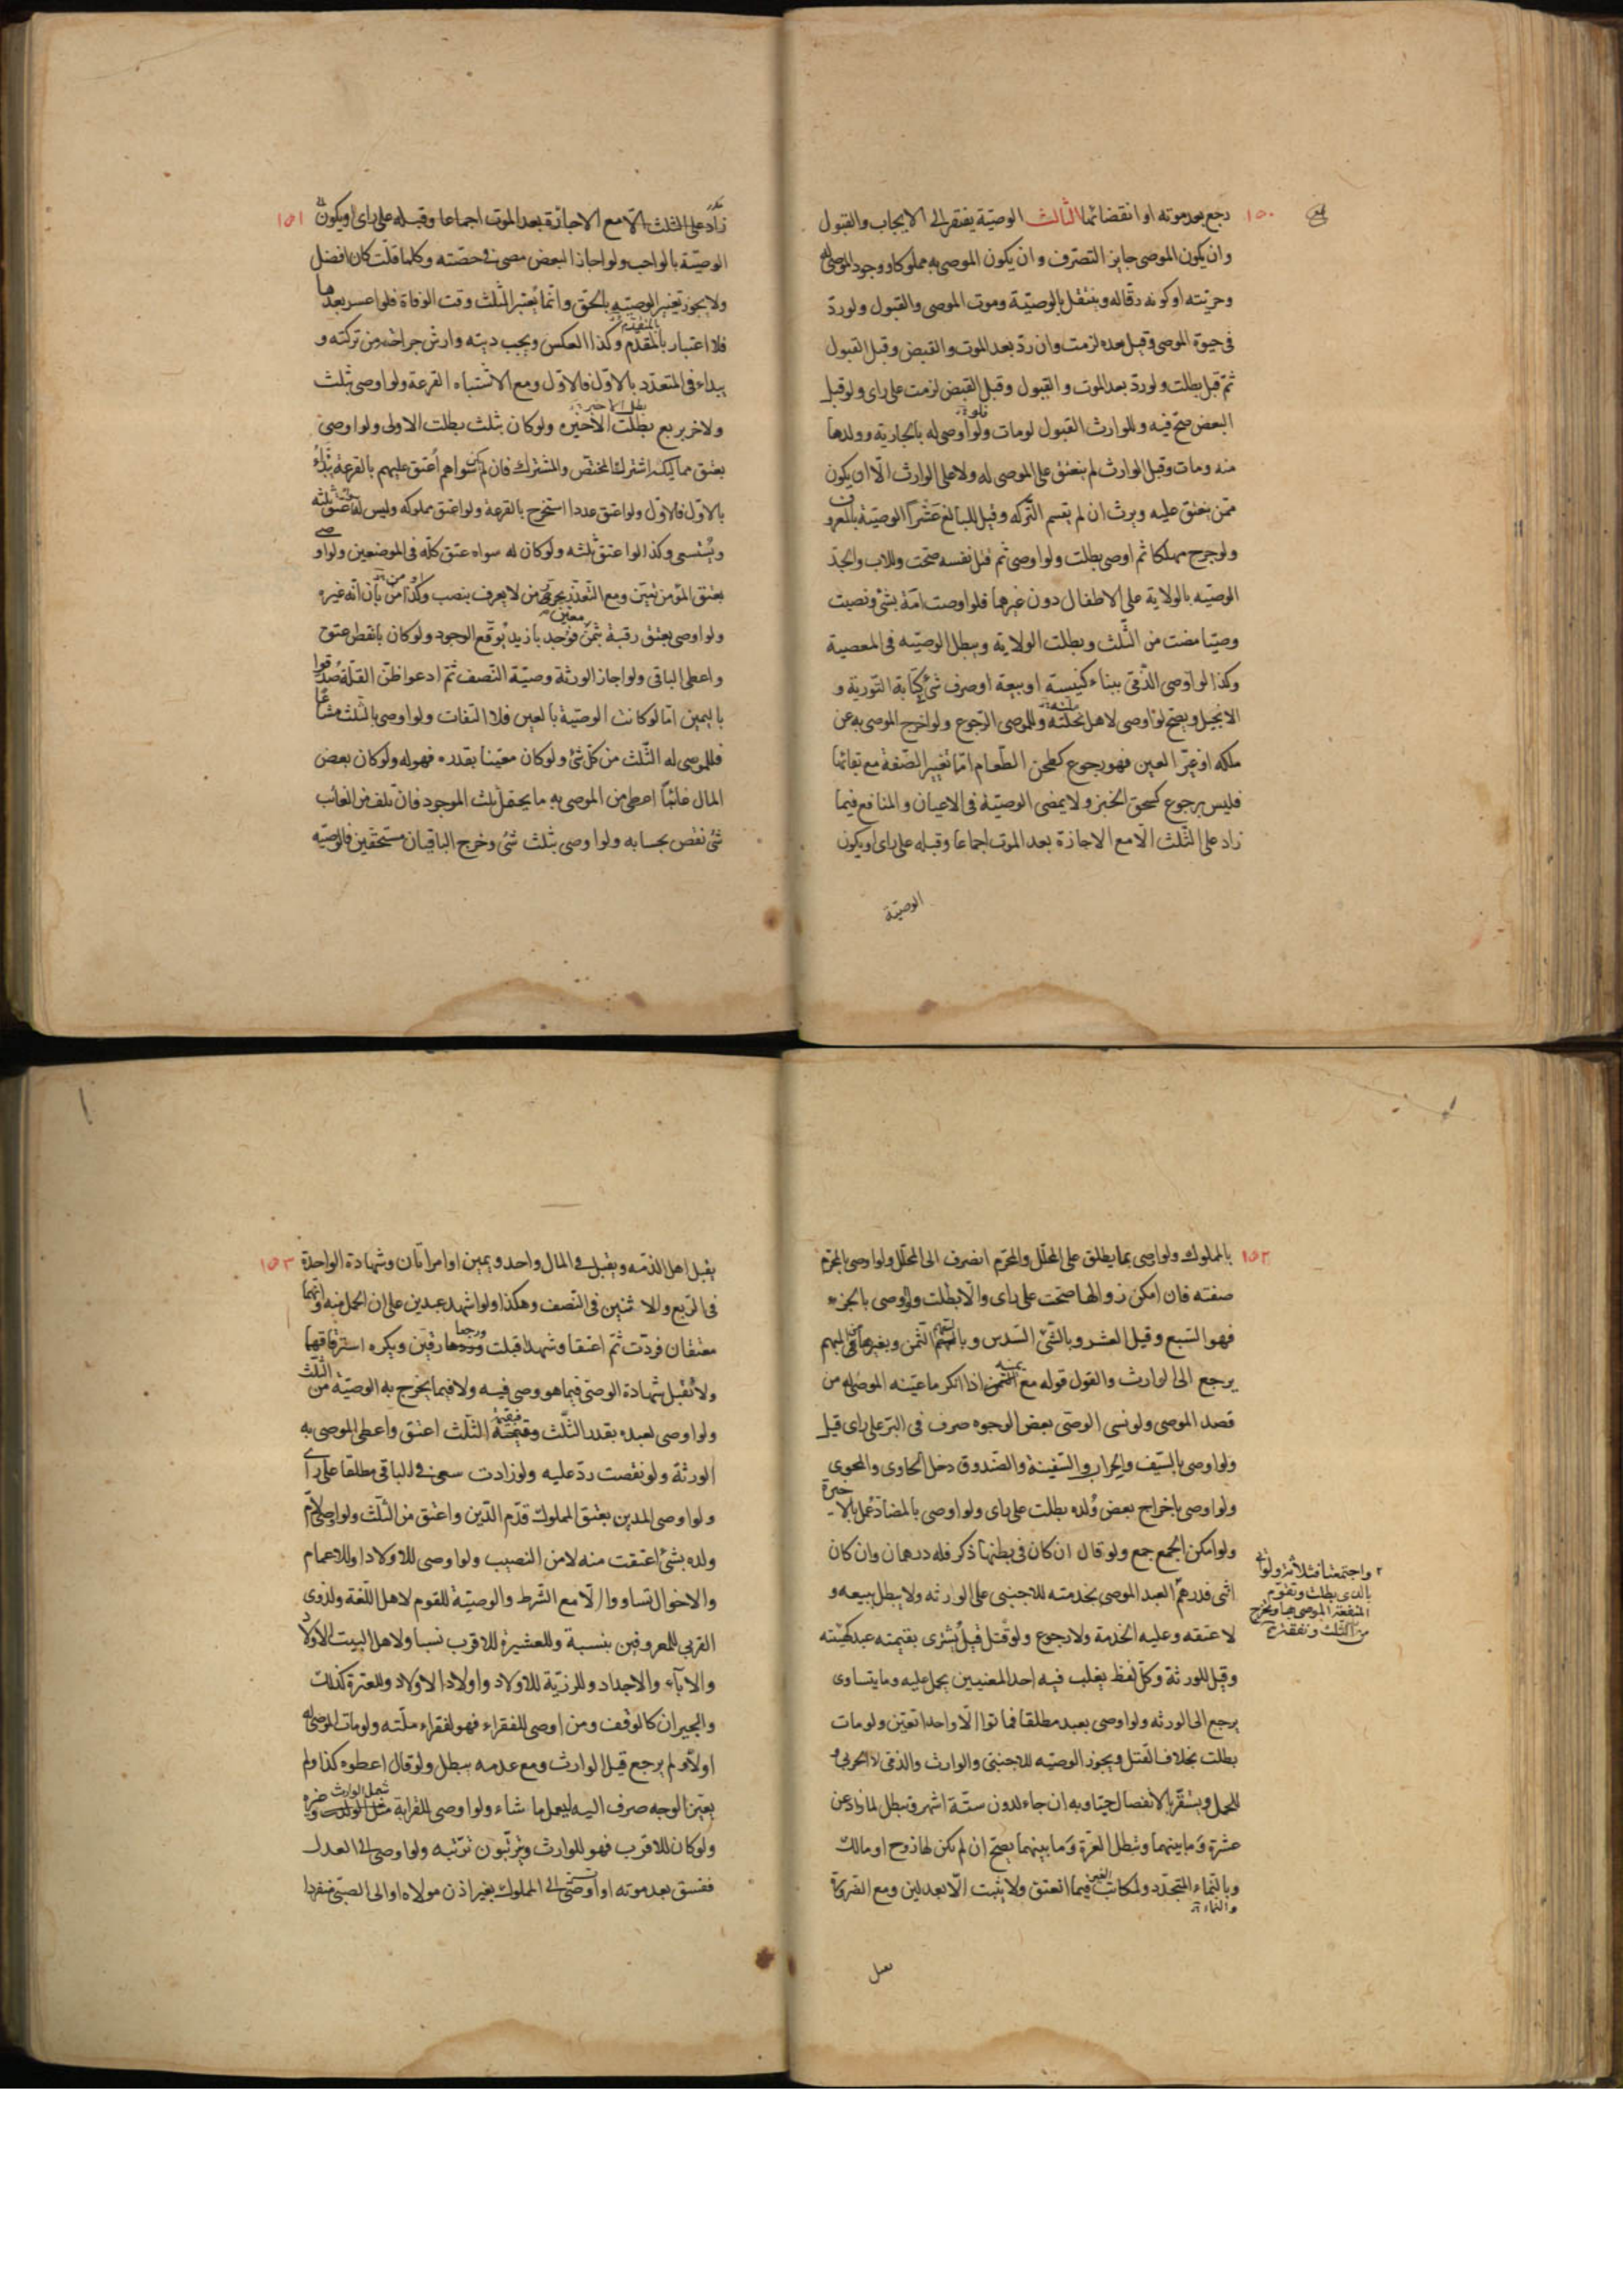 ١٥٠
رجع بعد موته او انقضائها الثالث الوصيّة يفتقر الى الايجاب والقبول
وان يكون الموصى جايز التصرّف وان يكون الموصى به مملوكا ووجود الموصى له
وحريّته او كونه رقّا له وينتقل بالوصيّة وموت الموصى والقبول ولو ردّ
فى حيوة الموصى وقبل بعده لزمت وان ردّ بعد الموت والقبض وقبل القبول
ثمّ قبل بطلت ولو ردّ بعد الموت والقبول وقبل القبض لزمت على راى ولو قبل
البعض صحّ فيه وللوارث القبول لو مات ولو اوصى له بالجارية وولدها
فلو
منه ومات وقبل الوارث لم ينعتق على الموصى له ولا على الوارث الّا ان يكون
ممّن ينعتق عليه ويرث ان لم يقسم التّركه وقيل للبالغ عشراً الوصيّة بالمعروف
ولو جرح مهلكا ثم اوصى بطلت ولو اوصى ثم قتل نفسه صحّت وللاب والجدّ
الوصيّه بالولاية على الاطفال دون غيرهما فلو اوصت امّه بشئ ونصبت
وصيّا مضت من الثّلث وبطلت الولاية ويبطل الوصيّه فى المعصية
وكذا لو اوصى الذّمّى ببناء كنيسة او بيعة او صرف شئ كتابة التّورية و
الانجيل ويصح لو اوصى لاهل نحلته وللموصى الرّجوع ولو اخرج الموصى به عن
ملكه او غيّر العين فهو رجوع كطحن الطّعام امّا تغيير الصّفة مع بقائها
فليس برجوع كسحق الخبز ولا يمضى الوصيّة فى الاعيان والمنافع فيما
زاد على الثّلث الّا مع الاجازة بعد الموت اجماعا وقبله على راى او يكون
الوصيّة
١٥١
زاد على الثلث الّا مع الاجازة بعد الموت اجماعا وقبله على راى او يكون
الوصيّة بالواجب ولو اجاز البعض مضى فى حصّته وكلما قلّت كان افضل
ولا يجوز تغيير الوصيّه بالحقّ وانّما يُعتبر الثّلث وقت الوفاة فلو اعسر بعدها
فلا اعتبار بالمقدّم وكذا العكس ويجب ديته وارش جراحه من تركته و
بالمتقدم
يبداء فى المتعدّد بالاوّل فالاوّل ومع الاشتباه القرعة ولو اوصى بثلث
ولاخر بربع بطلت الاخيره ولو كان بثلث بطلت الاولى ولو اوصى
بعتق مماليكه اشترك المختصّ والمشترك فان لم يكن سواهم اُعتق عليهم بالقرعة يبدأ
بالاوّل فالاوّل ولو اعتق عددا استخرج بالقرعة ولو اعتق مملوكه وليس له عتق ثلثه
ويُستسعى وكذا لو اعتق ثلثه ولو كان له سواه عتق كلّه فى الموضعين ولو اوصى
بعتق المؤمن تعيّن ومع التّعذر يجوز من لا يعرف بنصب وكذا من بان انّه غيره
ولو اوصى بعتق رقبة بثمن فوجد بازيد يُوقّع الوجود ولو كان بانقص عتق
معيّن
واعطى الباقى ولو اجاز الورثة وصيّة النّصف ثمّ ادعوا ظنّ القلّة صُدّقوا
باليمين امّا لو كانت الوصيّة بالعين فلا التفات ولو اوصى بالثلث مشاعاً
فللموصى له الثّلث من كلّ شئ ولو كان معيّنا بقدره فهو له ولو كان بعض
المال غائباً اعطى من الموصى به ما يحتمل ثلث الموجود فان تلف من الغائب
شئ نقص بحسابه ولو اوصى بثلث شئ وخرج الباقيان مستحقّين فالوصيّه
١٥٢
بالمملوك ولو اوصى بما يطلق على المحلّل والمحرّم انصرف الى المحلّل ولو اوصى بالمحرّم
صفته فان امكن زوالها صحّت على راى والّا بطلت ولو اوصى بالجزء
فهو السّبع وقيل العشر وبالشّئ السّدس وبالسّهم الثّمن وبغيرها فى المبهم
يرجع الى الوارث والقول قوله مع يمينه اذا انكر ما عيّنه الموصى له من
قصد الموصى ولو نسى الوصّى بعض الوجوه صرف فى البرّ على راى قيل
ولو اوصى بالسّيف والجراب والسّفينة والصّندوق دخل الحاوى والمحوى
ولو اوصى باخراج بعض وُلده بطلت على راى ولو اوصى بالمضادّ عُمل بالاخيرة
ولو امكن الجمع جمع ولو قال ان كان فى بطنها ذكر فله درهمان وان كان
انثى فدرهمٌ العبد الموصى بخدمته للاجنبى على الوارثه ولا يبطل ببيعه و
لا عتقه وعليه الخدمة ولا رجوع ولو قتل قيل يُشترى بقيمته عبد كهيئته
وقيل للورثة وكلّ لفظ يغلب فيه احد المعنيين يحمل عليه وما يتساوى
يرجع الى الورثه ولو اوصى بعبد مطلقا فماتوا الّا واحدا تعيّن ولو مات
بطلت بخلاف القتل ويجوز الوصيّه للاجنبى والوارث والذمّى لا الحربى و
للحمل ويستقرّ بالانفصال حيّا وبه ان جاء لدون ستّة اشهر وتبطل لما زاد عن
عشرة وما بينهما وتبطل الغرّة وما بينهما يصحّ ان لم يكن لها زوج او مالك
وبالنّماء المتجدّد ولمكاتب الغير فيما انعتق ولا يثبت الّا بعدلين ومع الضّرورة
يقبل
واجتمعتا فثلاثة ولو اتى
بالذى بطلت وتقوّم
المنفعة الموصى بها ويخرج
من الثلث ونفقة
١٥٣
يقبل اهل الذمّه ويقبل فى المال واحد ويمين او امراتان وشهادة الواحدة
فى الرّبع والاثنين فى النّصف وهكذا ولو اشهد عبدين على ان الحمل منه وانّهما
معتقان فردّت ثمّ اعتقا وشهدا قبلت ورجعا رقّين ويكره استرقاقهما
ولا تُقبل شهادة الوصّى فيما هو وصى فيه ولا فيما يخرج به الوصيّة من الثلث
ولو اوصى لعبده بقدر الثّلث وقيمته الثّلث اعتق واعطى الموصى به
الورثة ولو نقصت ردّ عليه ولو زادت سعى فى الباقى مطلقا على راى
ولو اوصى المدين بعتق المملوك قدّم الدّين واعتق من الثّلث ولو اوصى لامّ
ولده بشئ اعتقت منه لا من النصيب ولو اوصى للاولاد او للاعمام
والاخوال تساووا الّا مع الشّرط والوصيّة للقوم لاهل اللّغة ولذوى
القربى للمعروفين بنسبة وللعشيرة للاقرب نسبا ولاهل البيت للاولاد
والاباء والاجداد وللذرّيّة للاولاد واولاد الاولاد وللعترة كذلك
والجيران كالوقف ومن اوصى للفقراء فهو لفقراء ملّته ولو مات الموصى له
اولا ولم يرجع قيل الوارث ومع عدمه يبطل ولو قال اعطوه كذا ولم
يعيّن الوجه صرف اليه ليعمل ما شاء ولو اوصى للقرابة شمل الوارث وغيره
ولو كان للاقرب فهو للوارث ويترتّبون ترتّبه ولو اوصى الى العدل
ففسق بعد موته او اوصى الى المملوك بغير اذن مولاه او الى الصبّى منفردا